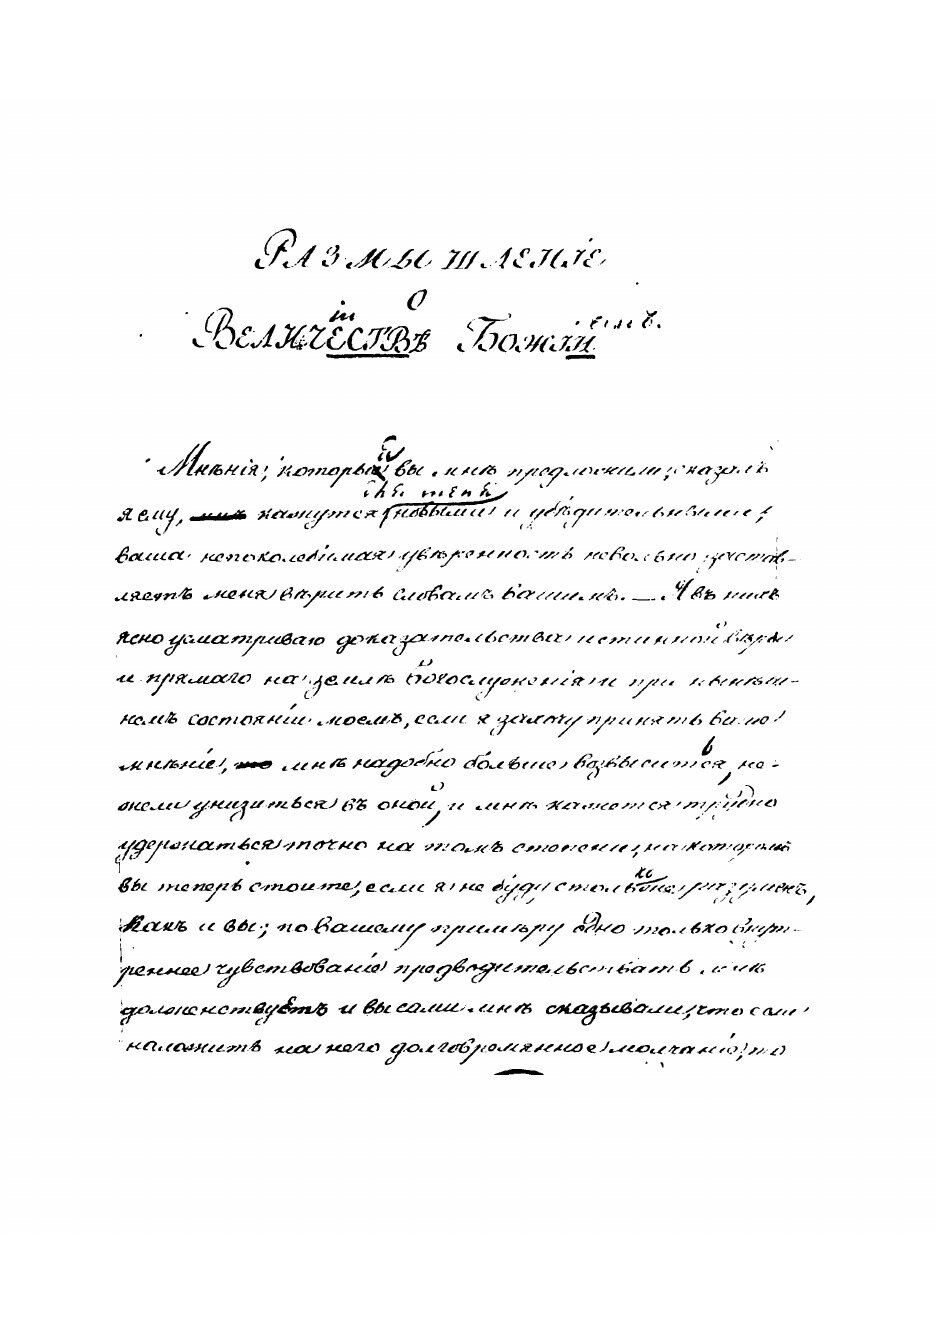 Размышленіе
о
Величествѣ Божіи
Мнѣнія, которыя вы мнѣ предложили, сказалъ
я ему, кажутся новыми и убѣдительными;
ваша непоколебимая увѣренность невольно застав-
ляетъ меня вѣрить словамъ вашимъ. — Я въ нихъ
ясно усматриваю доказательства истинной вѣры
и прямаго на землѣ богослуженія и при нынѣш-
немъ состояніи моемъ, если я захочу принять ваше
мнѣніе, мнѣ надобно больше возвыситься, не-
жели унизиться въ оной, и мнѣ кажется трудно
удержаться точно на томъ степени, на которомъ
вы теперь стоите, если я не буду столько разуменъ,
какъ и вы; по вашему примѣру одно только внут-
реннее чувствованіе предводительствать
долженствуетъ и вы сами мнѣ сказывали, что если
наложить на него долговремянное молчаніе, то